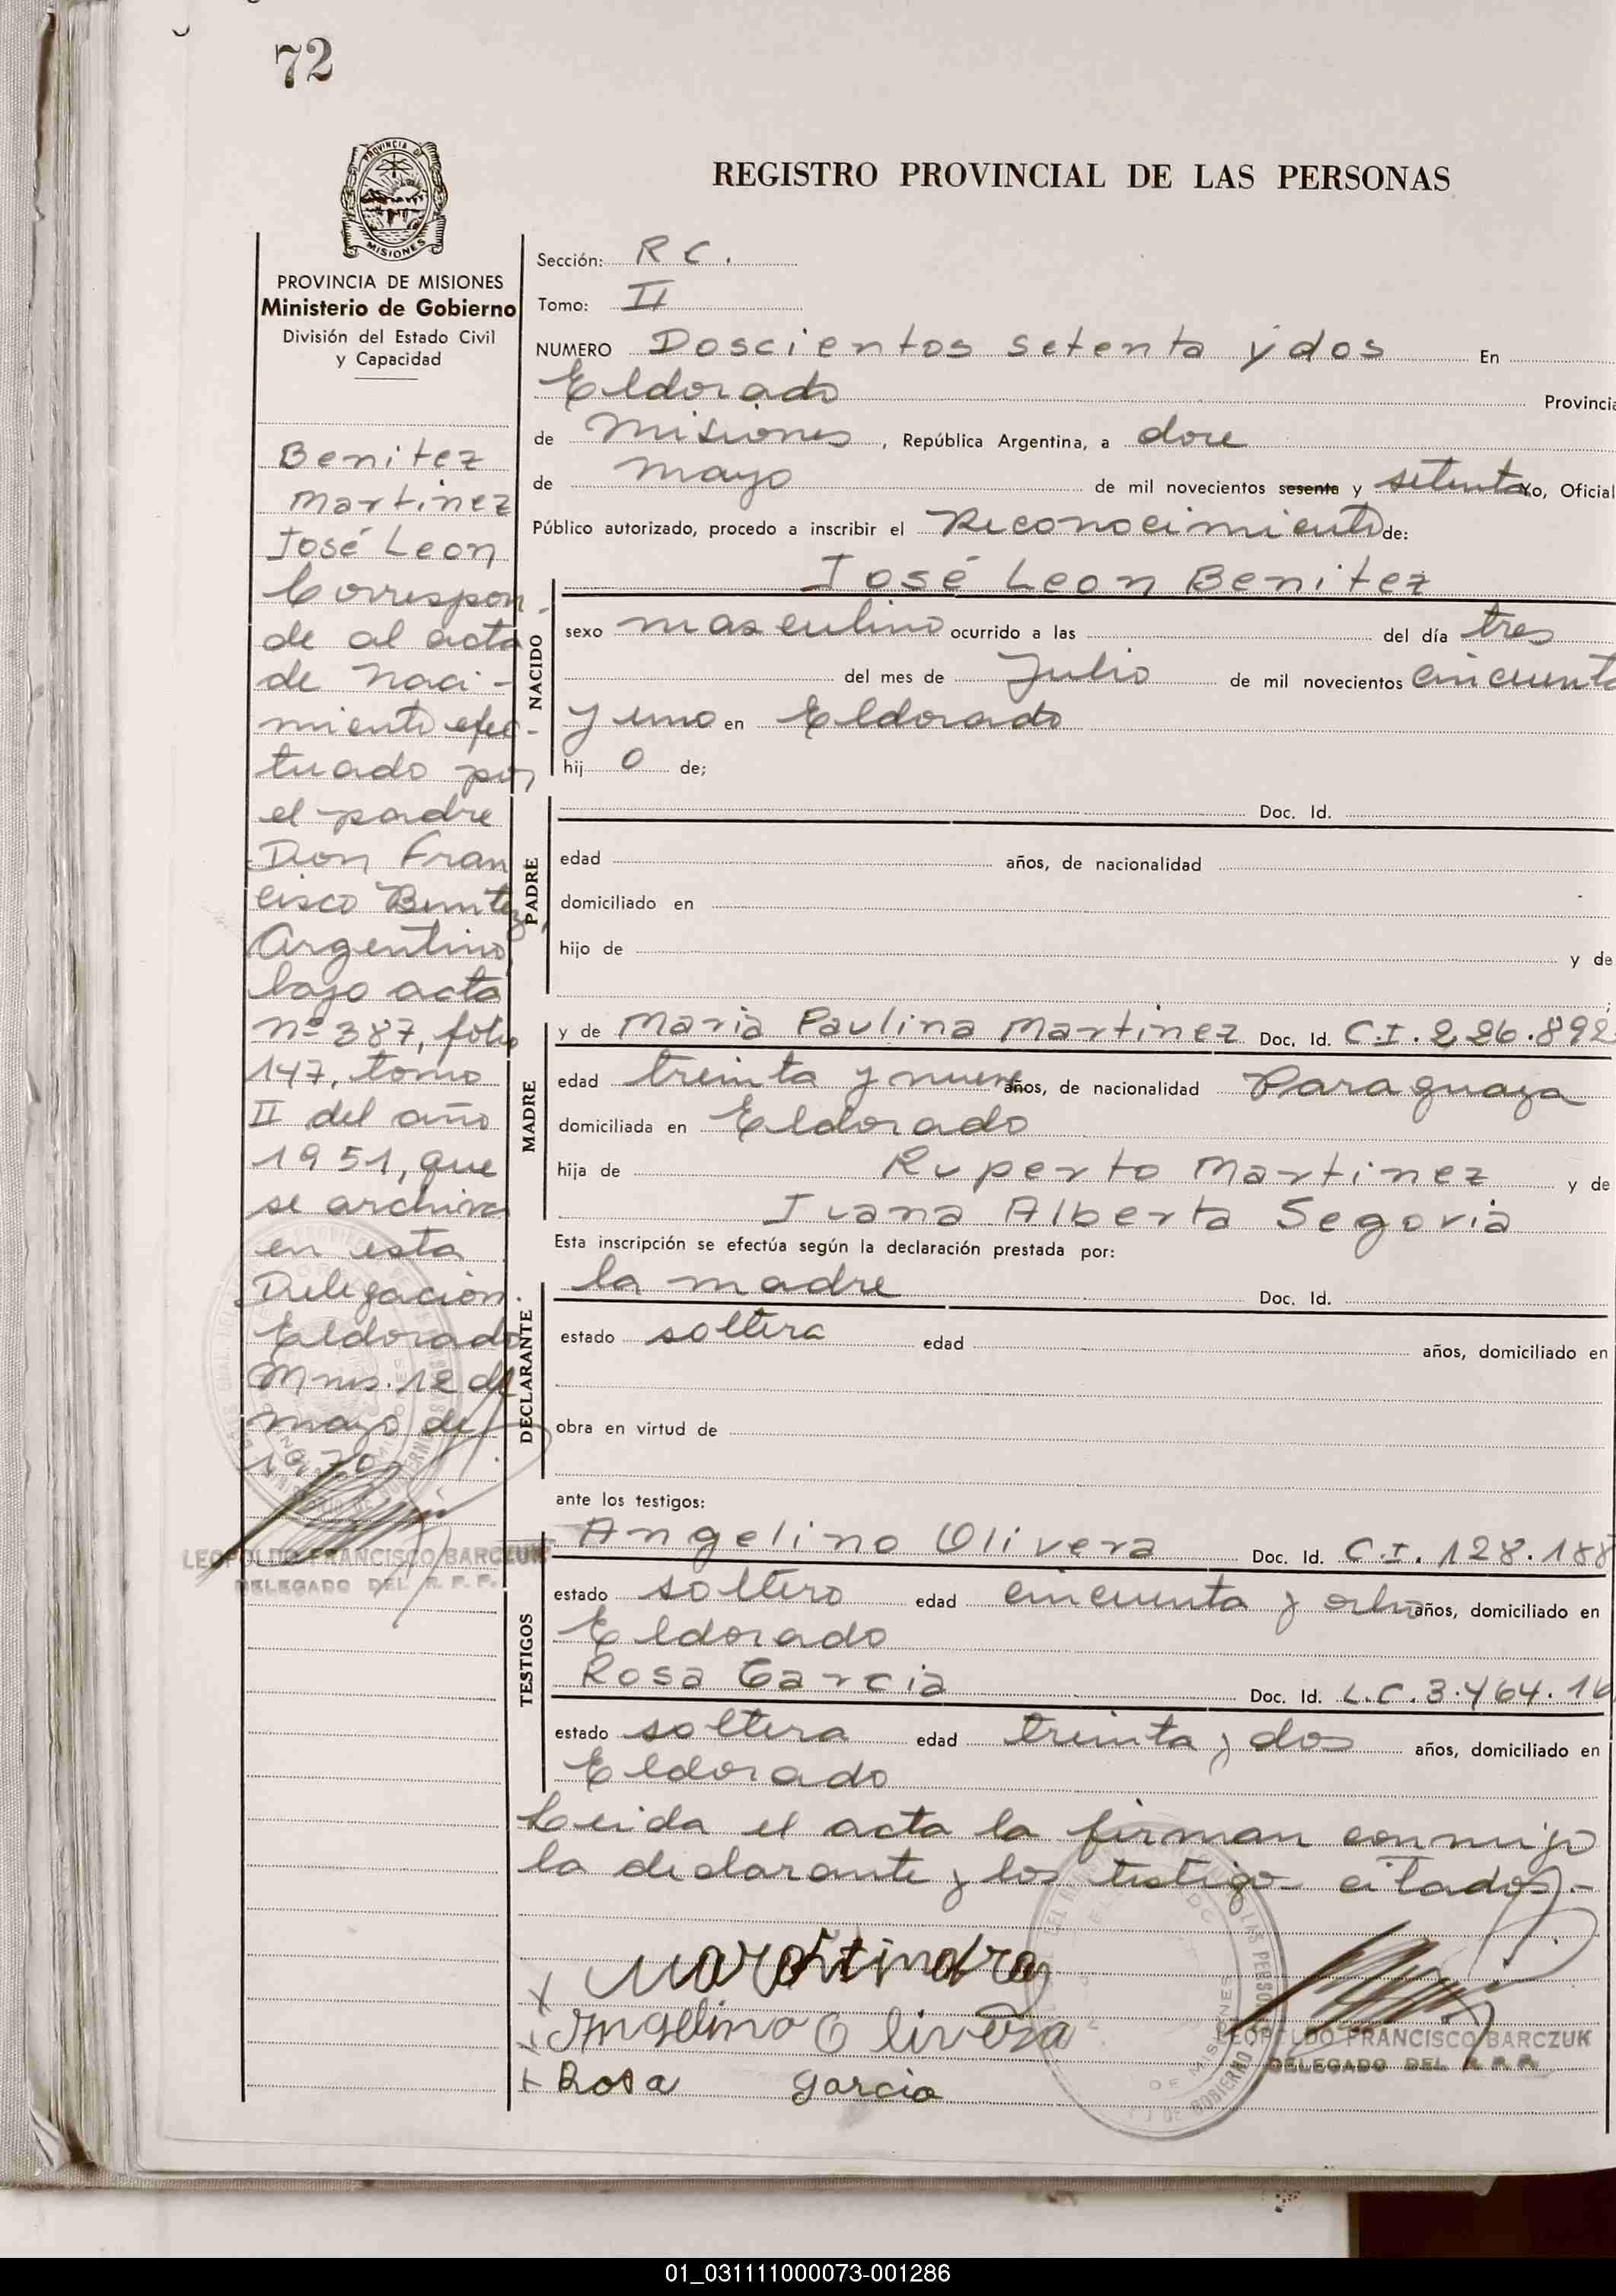 72
PROVINCIA DE
MISIONES
REGISTRO PROVINCIAL DE LAS PERSONAS
PROVINCIA DE MISIONES
Ministerio de Gobierno
División del Estado Civil
y Capacidad
Benitez
Martinez
José Leon
Correspon-
de al acta
de Naci-
miento efec-
tuado por
el padre
Don Fran
cisco Benitez,
Argentino,
bajo acta
Nº 387, folio
147, tomo
II del año
1951, que
se archiva
en esta
Delegación.
Eldorado
Mnes. 12 de
mayo de
1970.
LEOPOLDO FRANCISCO BARCZUK
DELEGADO DEL R. P. P.
Sección: R C.
Tomo: II
NUMERO Doscientos setenta y dos En
Eldorado Provincia
de Misiones, República Argentina, a doce
de mayo de mil novecientos sesenta y setenta Yo, Oficial
Público autorizado, procedo a inscribir el Reconocimiento de:
NACIDO
José Leon Benitez
sexo masculino ocurrido a las del día tres
del mes de Julio de mil novecientos cincuenta
y uno en Eldorado
hij o de;
PADRE
Doc. Id.
edad años, de nacionalidad
domiciliado en
hijo de y de
MADRE
y de Maria Paulina Martinez Doc. Id. C.I. 226.892
edad treinta y nueve años, de nacionalidad Paraguaya
domiciliada en Eldorado
hija de Ruperto Martinez y de
Juana Alberta Segovia
Esta inscripción se efectúa según la declaración prestada por:
DECLARANTE
la madre Doc. Id.
estado soltera edad años, domiciliado en
obra en virtud de
ante los testigos:
TESTIGOS
Angelino Olivera Doc. Id. C.I. 128.188
estado soltero edad cincuenta y ocho años, domiciliado en
Eldorado
Rosa Garcia Doc. Id. L.C. 3.464.16
estado soltera edad treinta y dos años, domiciliado en
Eldorado
Leida el acta la firman conmigo
la declarante y los testigos citados.-
x
x Angelino Olivera
x Rosa Garcia
LEOPOLDO FRANCISCO BARCZUK
DELEGADO DEL R. P. P.
01_031111000073-001286